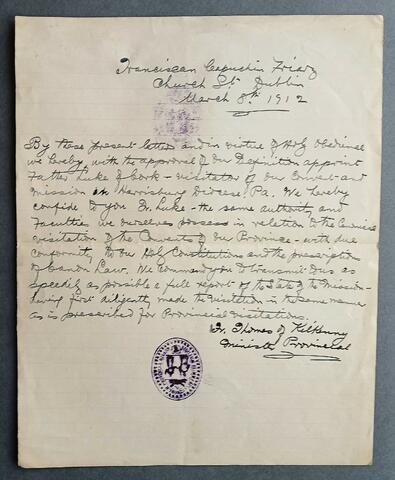 Franciscan Capuchin Friary
Church St. Dublin
March 8th 1912
By these present letters and in virtue of Holy Obedience
we hereby, with the approval of our Definition appoint
Father Luke of Cork - visitator of our Convent and
mission in Harrisburg Diocese, Pa. We hereby
confide to you Fr. Luke - the same authority and
Faculties we ourselves possess in relation to the Canonical
visitation of the Convents of our Province - with due
conformity to our Holy Constitutions and the prescriptions
of Canon Law. We command you to transmit to us as
speedily as possible a full report of the State of the Mission -
having first diligently made the visitation in the same manner
as is prescribed for Provincial visitations.
Fr. Thomas of Kilkenny
Minister Provincial